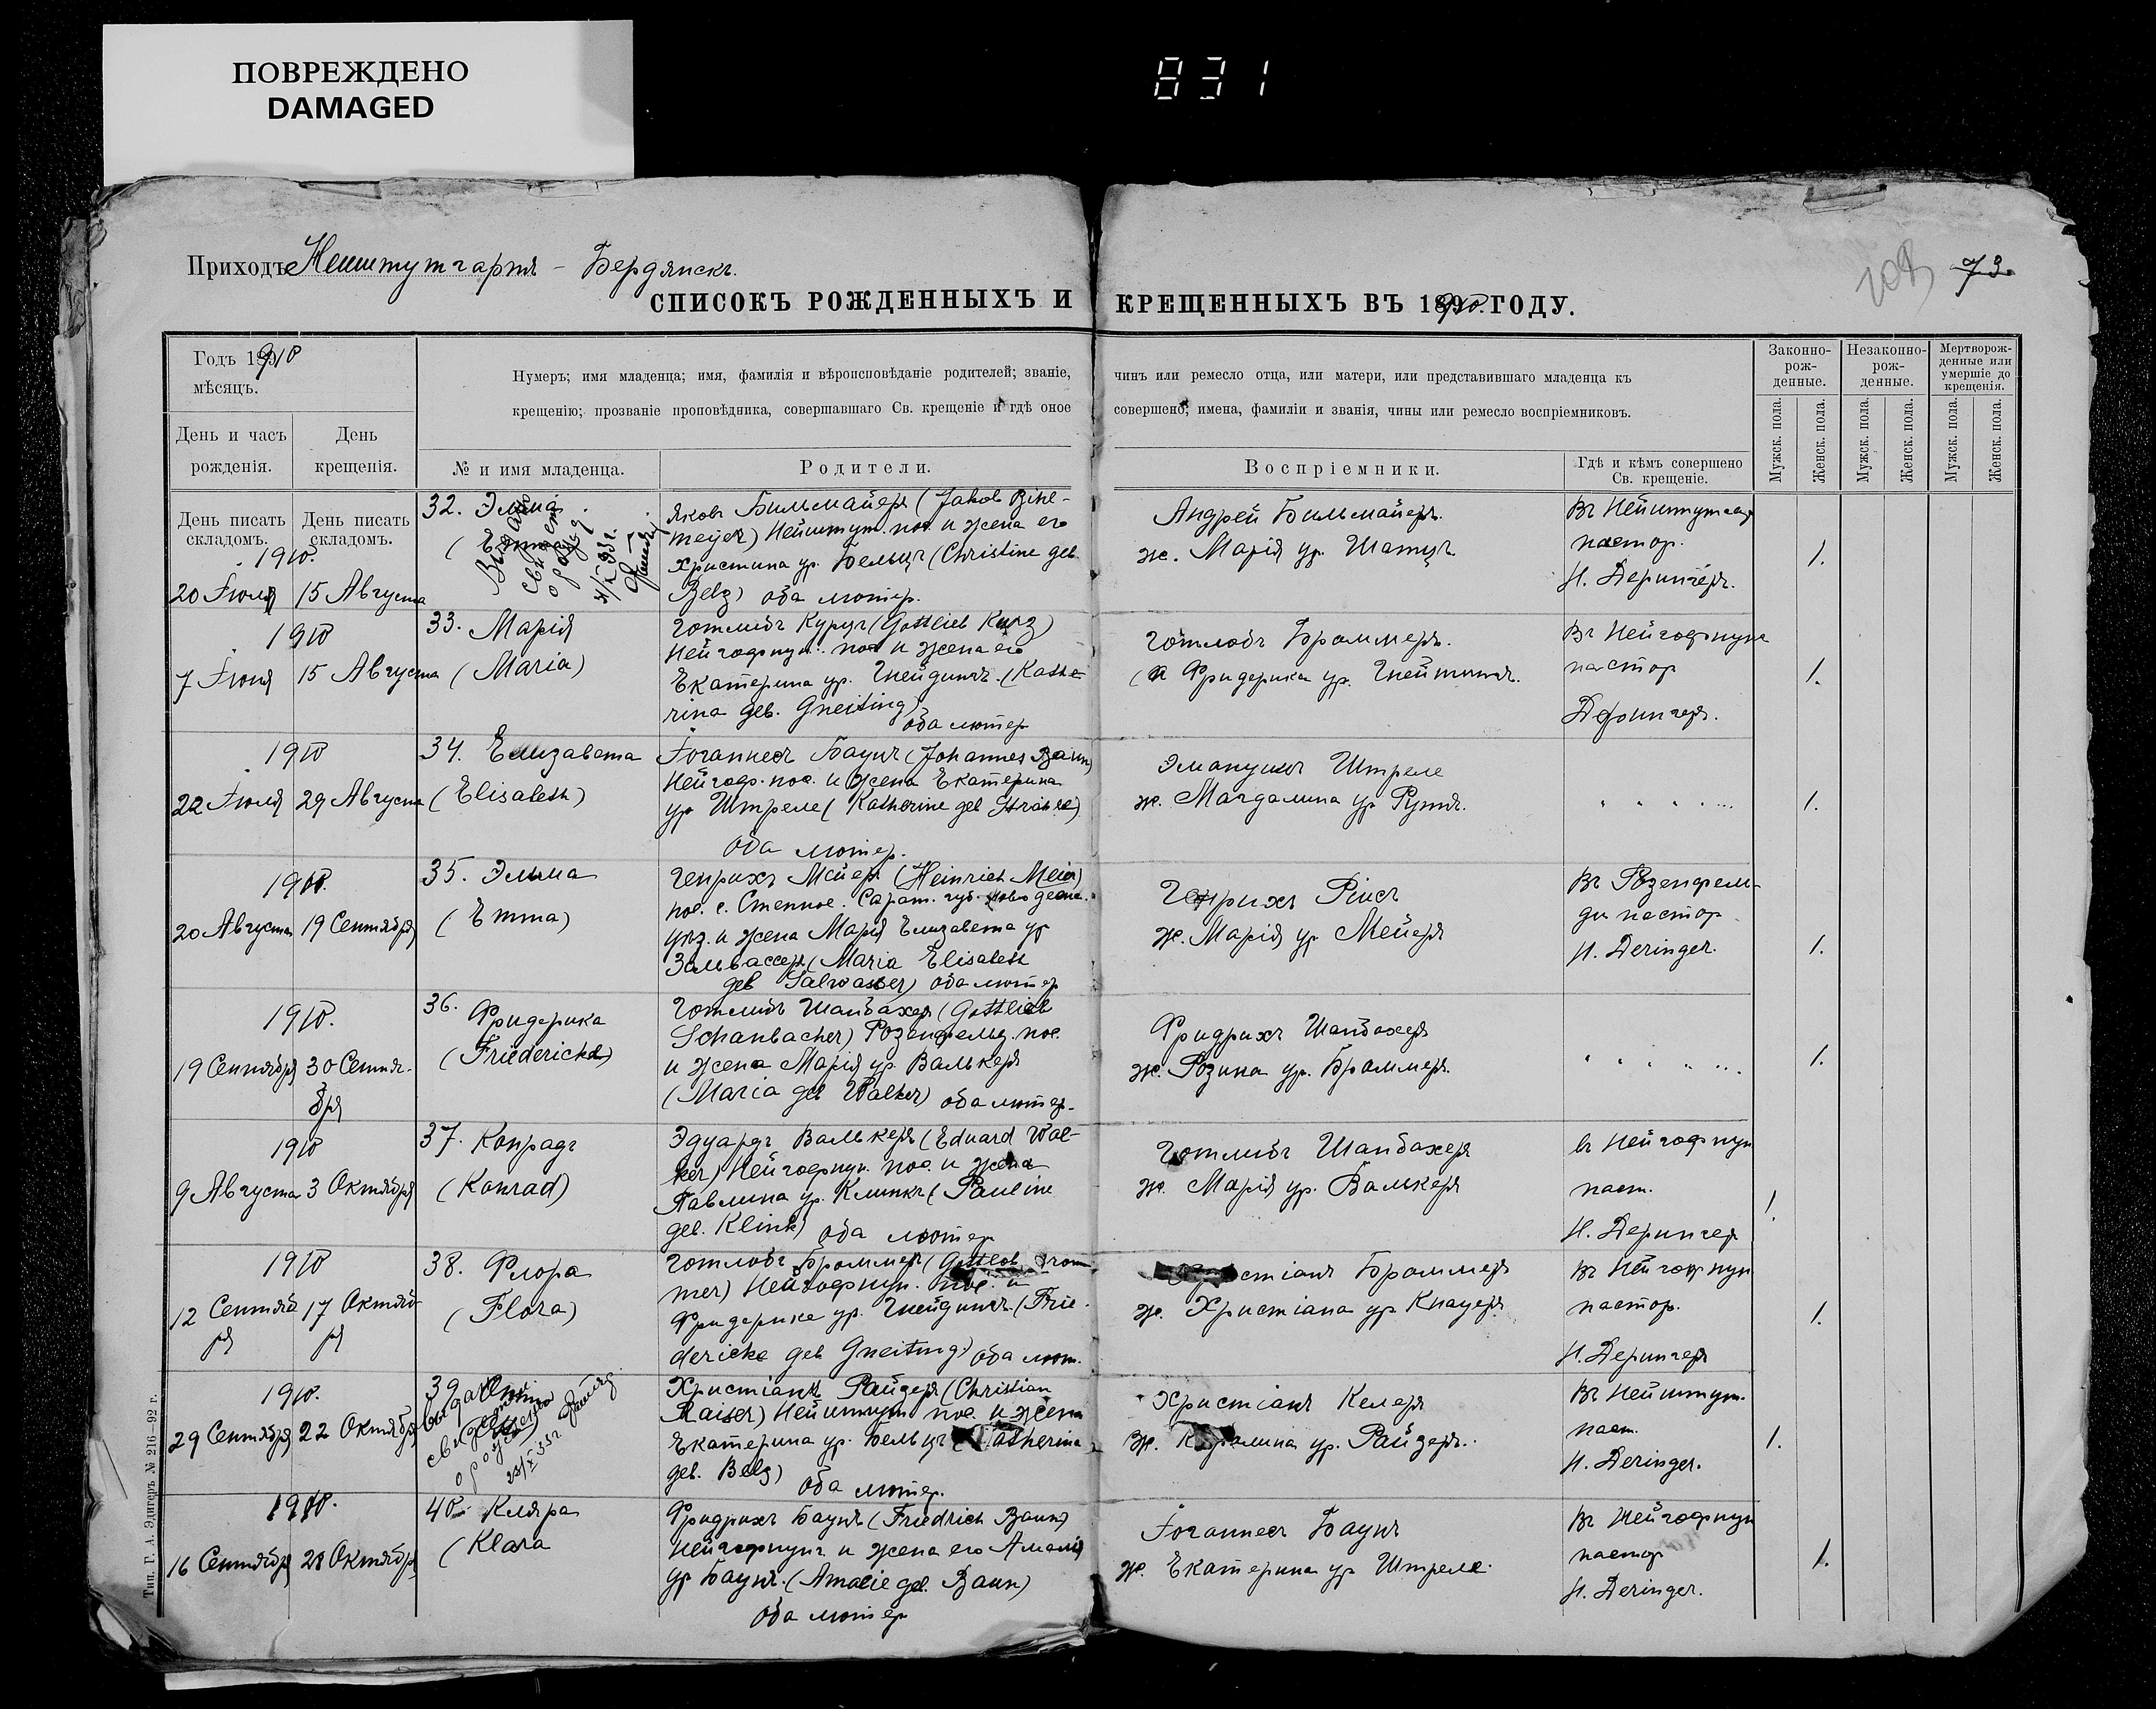 ПОВРЕЖДЕНО
DAMAGED
831
Приходъ Нейштутгартъ - Бердянскъ.
73.
СПИСОКЪ РОЖДЕННЫХЪ И КРЕЩЕННЫХЪ ВЪ 1910. ГОДУ.
Годъ 1910
мѣсяцъ.
День и часъ рожденія.
День крещенія.
Нумеръ; имя младенца; имя, фамилія и вѣроисповѣданіе родителей; званіе, чинъ или ремесло отца, или матери, или представившаго младенца къ
крещенію; прозваніе проповѣдника, совершавшаго Св. крещеніе и гдѣ оное совершено; имена, фамиліи и званія, чины или ремесло воспріемниковъ.
№ и имя младенца.
Родители.
Воспріемники.
Гдѣ и кѣмъ совершено
Св. крещеніе.
Законно-
рож-
денные.
Незаконно-
рож-
денные.
Мертворож-
денные или
умершіе до
крещенія.
Мужск. пола.
Женск. пола.
Мужск. пола.
Женск. пола.
Мужск. пола.
Женск. пола.
День писать
складомъ.
День писать
складомъ.
1910.
20 Іюля
15 Августа
32. Эмма
(Emma
Выдано
свидет
о рожд
Яковъ Бильмайеръ (Jakob Bihl-
meyer) Нейштут. пос. и жена его
Христина ур. Бельцъ (Christine geb.
Belz) оба лютер.
Андрей Бильмайеръ.
ж. Марія ур. Шатцъ
Въ Нейштутгар
пастор.
Н. Дерингеръ.
1.
1910
7 Іюня
15 Августа
33. Марія
(Maria)
Готлибъ Курцъ (Gottlieb Kurz)
Нейгофнун. пос и жена его
Екатерина ур. Гнейдингъ (Kathe-
rina geb. Gneiting)
оба лютер
Готлобъ Броммеръ.
Фридерика ур. Гнейтингъ.
Въ Нейгофнунг
пастор
Дерингеръ.
1.
1910
22 Іюля
29 Августа
34. Елизавета
(Elisabeth)
Іоганнесъ Баунъ (Johannes Baun)
Нейгоф. пос. и жена Екатерина
ур Штреле (Katherine geb Strähle)
оба лютер.
Эмануилъ Штреле
ж. Магдалина ур Рутъ.
" " " " ...
1.
1910.
20 Августа
19 Сентября
35. Эмма
(Emma)
Генрихъ Мейеръ (Heinrich Meier)
пос. с. Степное. Сарат. губ. Новоузенс.
уѣз. и жена Марія Елизавета ур
Зальвассеръ (Maria Elisabeth
geb Salwasser) оба лютер
Генрихъ Рисъ
ж. Марія ур Мейеръ
Въ Розенфель-
дѣ пастор
H. Deringer.
1.
1910.
19 Сентября
30 Сентя-
бря
36. Фридерика
(Friedericke)
Готлибъ Шанбахеръ (Gottlieb
Schanbacher) Розенфельд. пос.
и жена Марія ур. Валькеръ
(Maria geb Walker) оба лютер.
Фридрихъ Шанбахеръ
ж. Розина ур. Броммеръ.
" " " " ...
1.
1910
9 Августа
3 Октября
37. Конрадъ
(Konrad)
Эдуардъ Валькеръ (Eduard Wal-
ker) Нейгофнун. пос. и жена
Павлина ур. Клинкъ (Pauline
geb. Klink) оба лютер
Готлибъ Шанбахеръ
ж. Марія ур. Валькеръ
въ Нейгофнун
паст.
Н. Дерингеръ
1.
1910
12 Сентяб
ря
17 Октяб-
ря
38. Флора
(Flora)
Готлобъ Броммеръ (Gottlob Brom-
mer) Нейгофнун. пос. и
Фридерике ур. Гнейдингъ (Frie-
dericke geb Gneiting) оба лют.
Христіанъ Броммеръ
ж. Христіана ур Кнауеръ
Въ Нейгофнун
пастор.
Н. Дерингеръ
1.
1910.
29 Сентября
22 Октября
39
выдано
свидетел
о рожд
Христіанъ Райзеръ (Christian
Raiser) Нейштут пос. и жена
Екатерина ур. Бельцъ (Katherina
geb. Belz) оба лютер.
Христіанъ Келеръ
ж. Каролина ур. Райзеръ.
Въ Нейштут.
паст.
H. Deringer.
1.
1910.
16 Сентября
28 Октября
40. Клара
(Klara
Фридрихъ Баунъ (Friedrich Baun)
Нейгофнунг и жена его Амалія
ур Баунъ. (Amalie geb. Baun)
оба лютер
Іоганнесъ Баунъ
ж. Екатерина ур Штреле.
Въ Нейгофнун
пастор
H. Deringer.
1.
Тип. Г. А. Эдигеръ № 216—92 г.